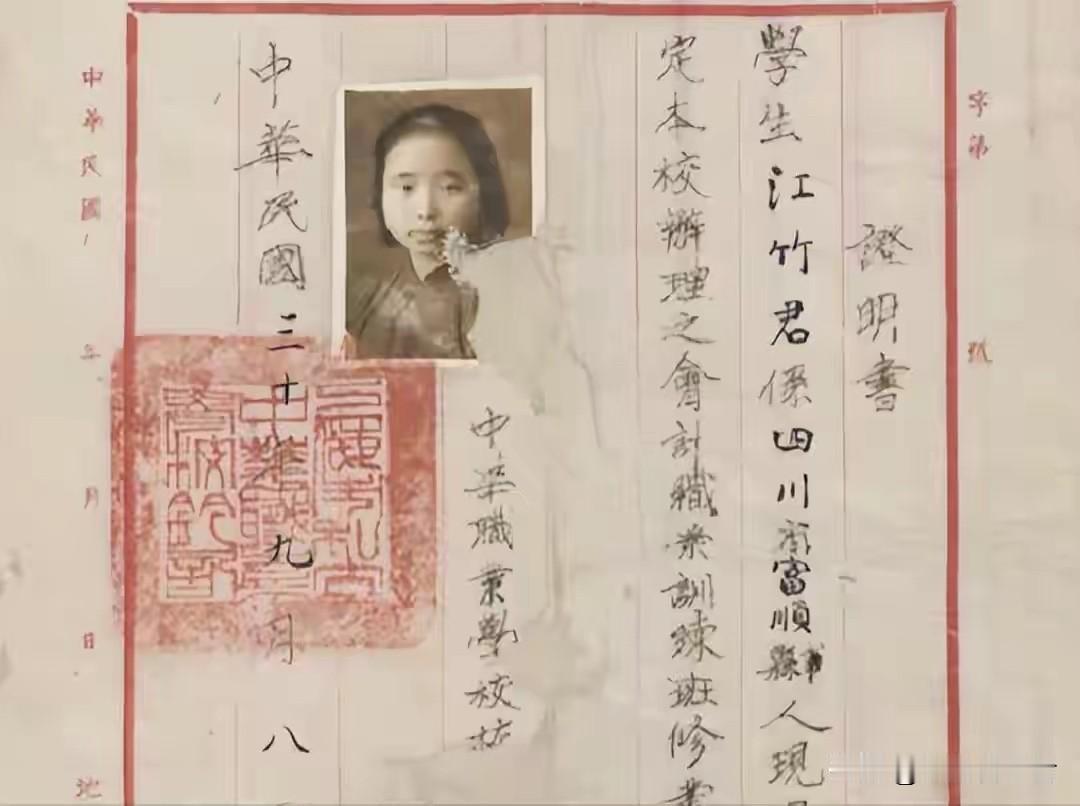 字第 號
證明書
學生江竹君係四川省富順縣人現
定本校辦理之會計職業訓練班修業
中华職業學校校
中華民國三十 年九月八
中華民國 年 月 日
地